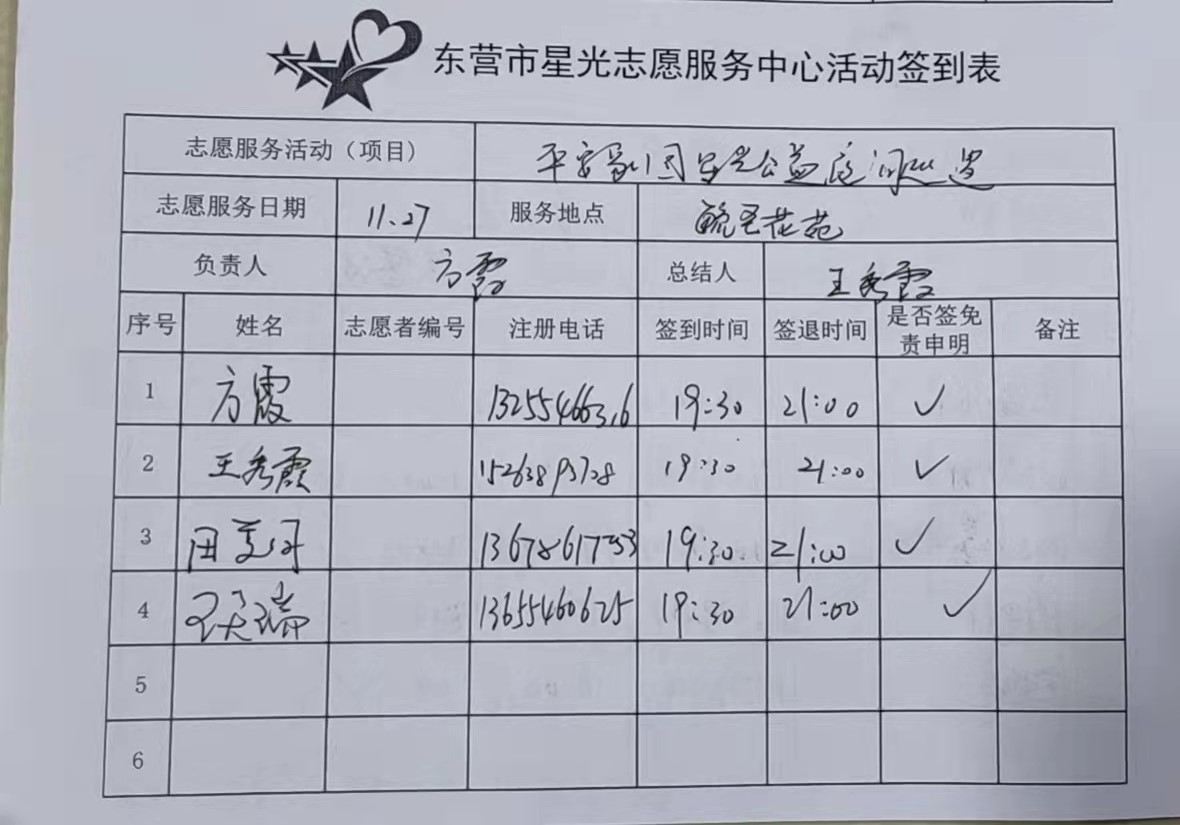 东营市星光志愿服务中心活动签到表
志愿服务活动（项目） 平安家园星光公益夜间巡逻
志愿服务日期 11.27 服务地点 花苑
负责人 方霞 总结人 王秀霞
序号 姓名 志愿者编号 注册电话 签到时间 签退时间 是否签免责申明 备注
1 方霞 13255466316 19:30 21:00 ✓
2 王秀霞 19:30 21:00 ✓
3 田 19:30 21:00 ✓
4 瑞 13655460625 19:30 21:00 ✓
5
6